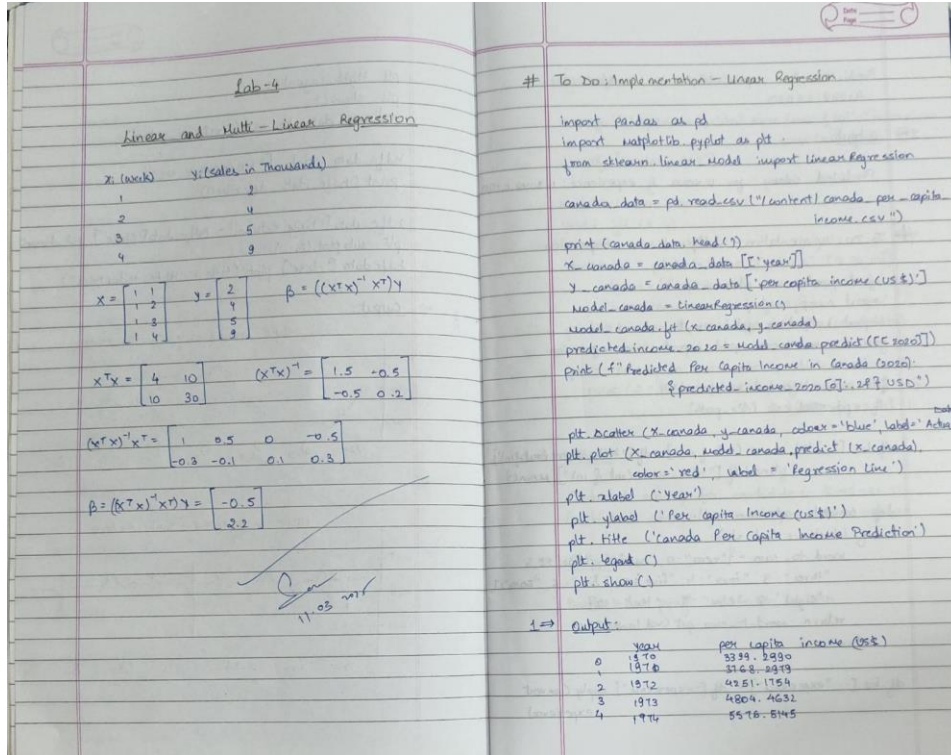 Lab-4
Linear and Multi-Linear Regression
xi (week) yi (sales in Thousands)
1 2
2 4
3 5
4 9
X = [1 1 y = [2 β = ((XᵀX)⁻¹ Xᵀ)y
1 2 4
1 3 5
1 4] 9]
XᵀX = [4 10 (XᵀX)⁻¹ = [1.5 -0.5
10 30] -0.5 0.2]
(XᵀX)⁻¹Xᵀ = [1 0.5 0 -0.5
-0.3 -0.1 0.1 0.3]
β = ((XᵀX)⁻¹Xᵀ)y = [-0.5
2.2]
11-03
Date
Page
# To Do: Implementation - Linear Regression
import pandas as pd
import matplotlib.pyplot as plt
from sklearn.linear_model import LinearRegression
canada_data = pd.read_csv ("/content/canada_per_capita_
income.csv")
print (canada_data.head())
X_canada = canada_data [['year']]
y_canada = canada_data ['per capita income (US$)']
model_canada = LinearRegression()
model_canada.fit (X_canada, y_canada)
predicted_income_2020 = model_canda.predict ([[2020]])
print (f"Predicted Per Capita Income in Canada (2020):
{predicted_income_2020[0]:.2f} USD")
plt.scatter (X_canada, y_canada, color='blue', label='Actual
plt.plot (X_canada, model_canada.predict (X_canada),
color='red', label = 'Regression Line')
plt.xlabel ('Year')
plt.ylabel ('Per capita Income (US$)')
plt.title ('Canada Per Capita Income Prediction')
plt.legend ()
plt.show ()
1 ⇒ Output:
year per capita income (US$)
0 1970 3399.2990
1 1971 3768.2979
2 1972 4251.1754
3 1973 4804.4632
4 1974 5576.5145